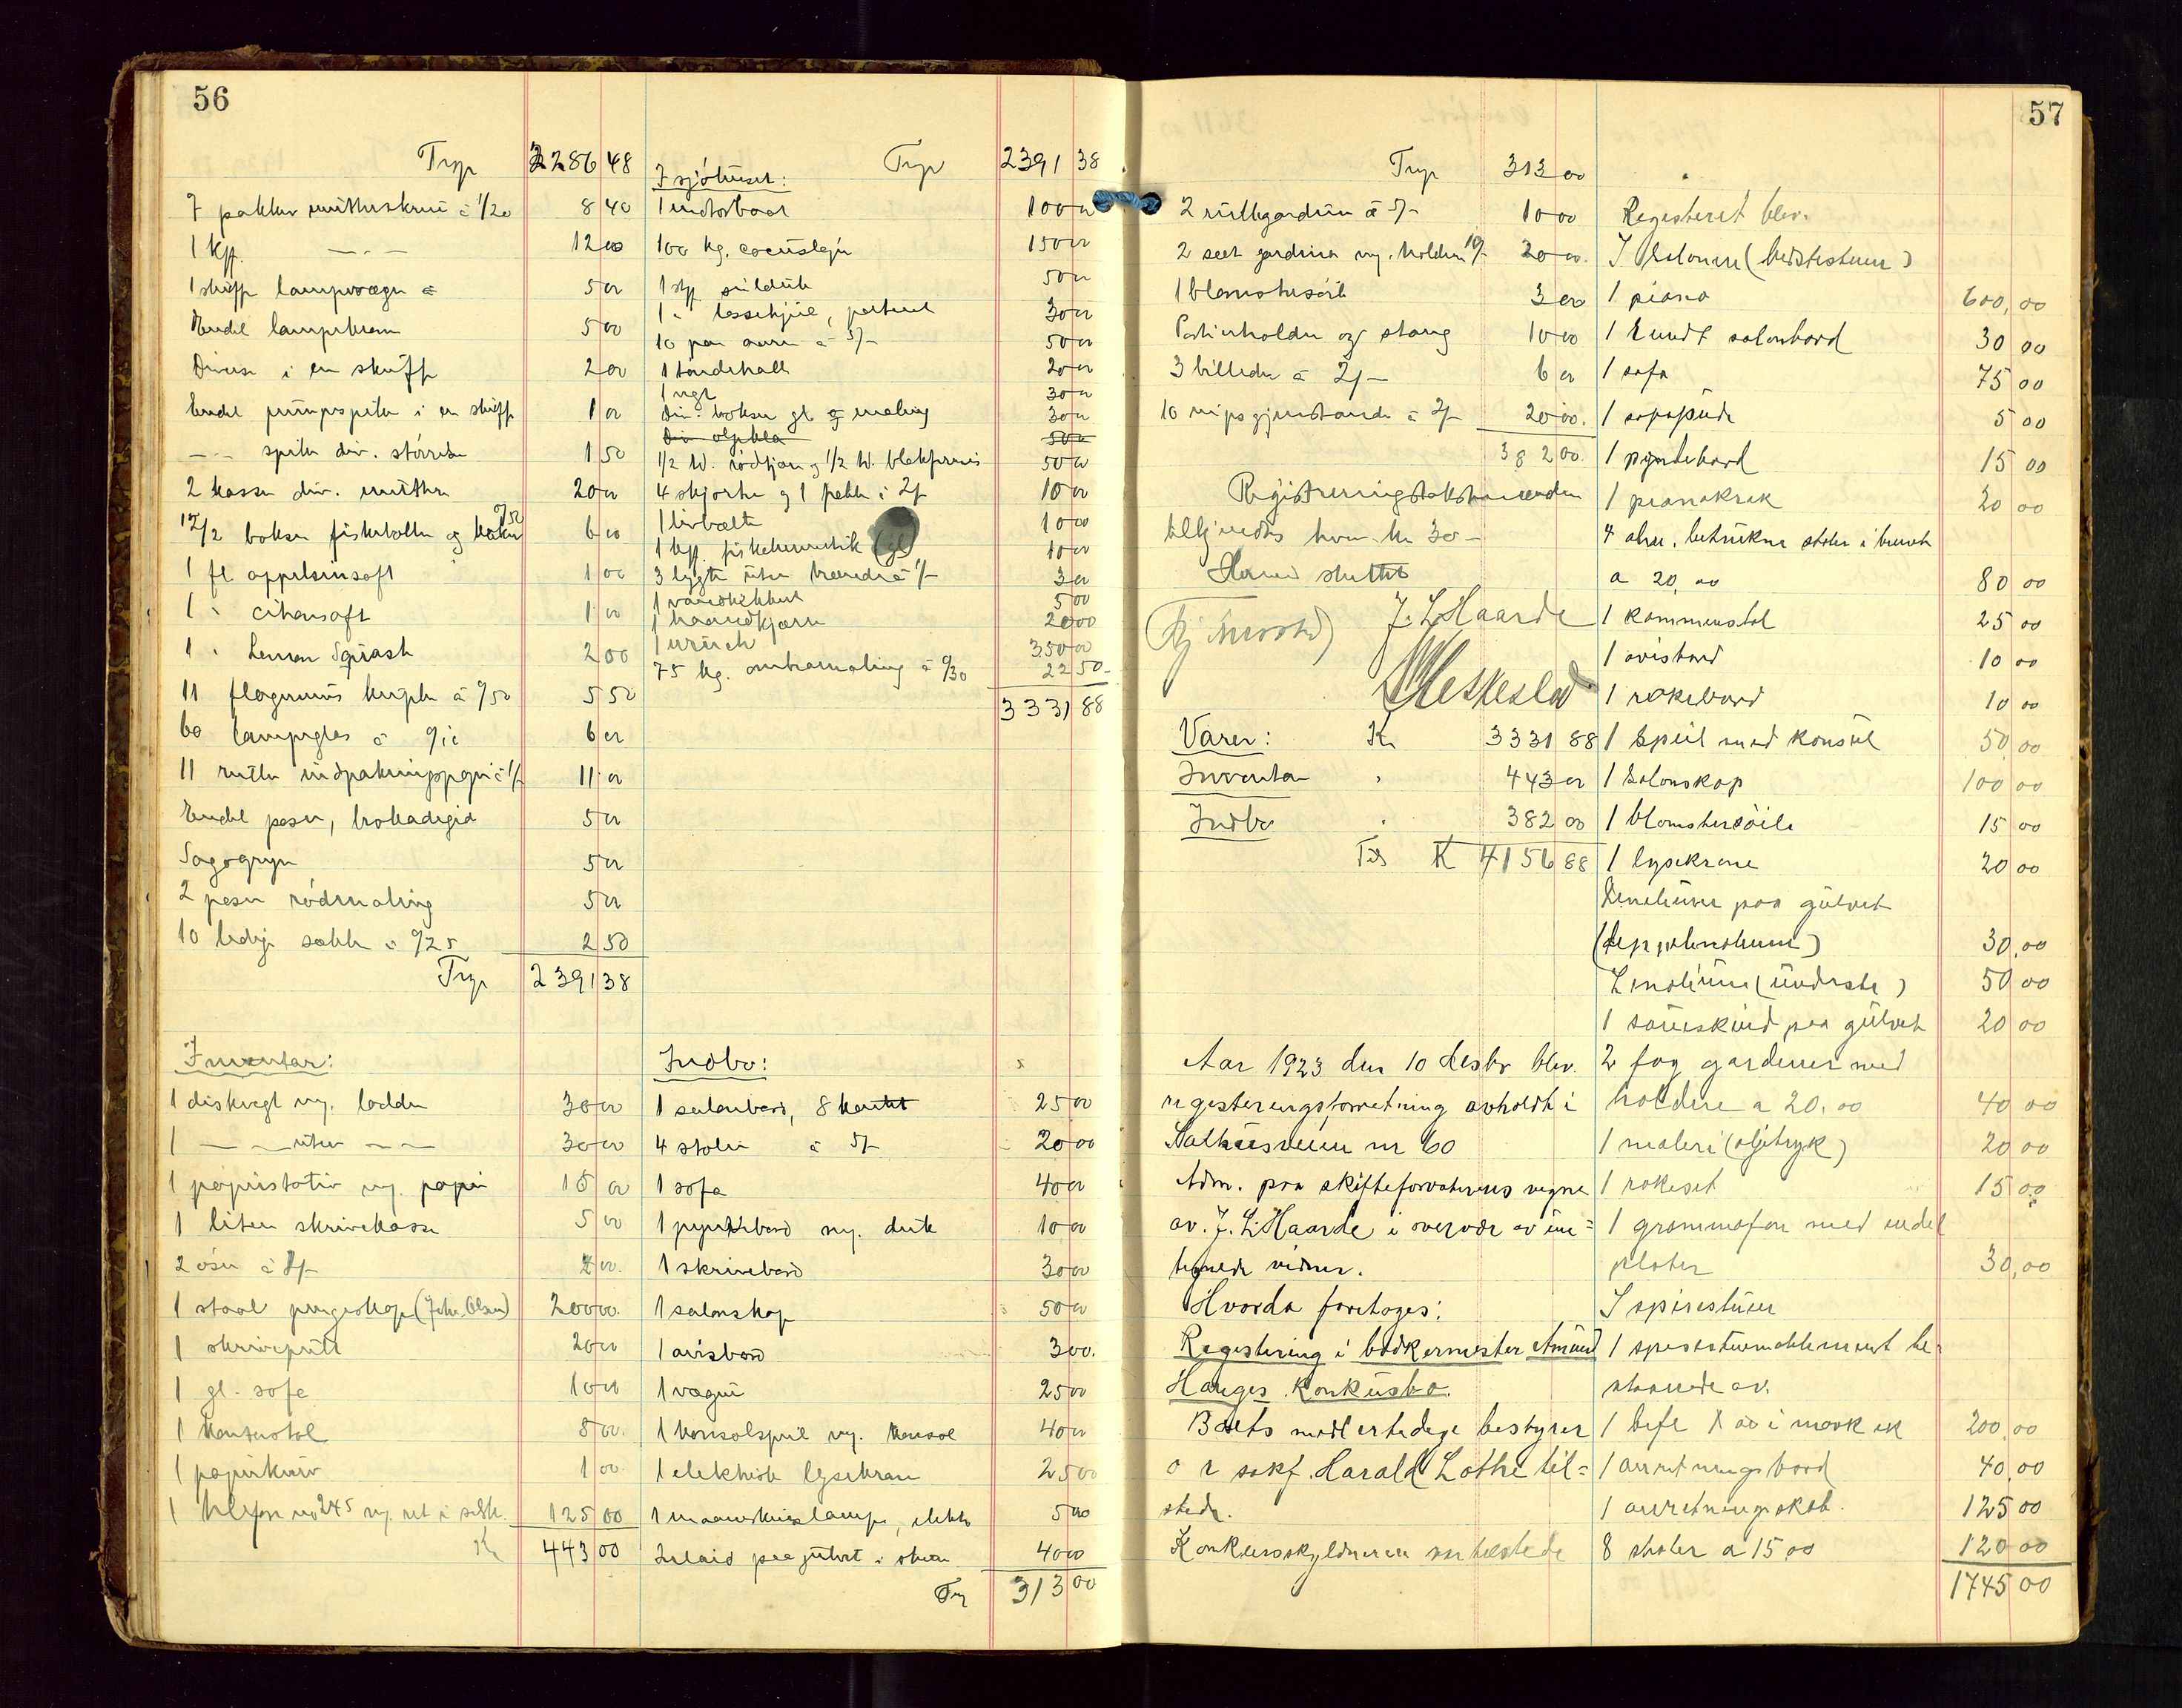 56
Trp 2286 48
7 pakker mutterskruer à 1/20 8 40
1 Kff. — . — 12 00
1 skuff lampevæger 5 00
Endel lampebren 5 00
Diverse i en skuff 2 00
Endel i en skuff 1 00
— — spiker div. størrelse 1 50
2 kasser div. muttere 20 00
12/2 bokser fiskeboller og kaker 6 00
1 fl appelsinsaft 1 00
1 " citronsaft 1 00
1 " Lemon Squash 2 00
11 knipler à 0/50 5 50
60 lampeglas à 0/10 6 00
11 ruller indpakningspapir à 1/- 11 00
Endel poser, 5 00
Sagogryn 5 00
2 poser rødmaling 5 00
10 ledige sækker à 0/25 2 50
Trp 2391 38
Inventar:
1 diskvegt m. lodder 30 00
1 — — uten — — 30 00
1 papirstativ m. papir 15 00
1 liten skrivekasse 5 00
2 øser à 1/- 2 00.
1 staal pengeskap (Johs. Olsen) 200 00.
1 skrivepult 20 00
1 gl. sofa 10 00
1 kontorstol 5 00.
1 papirkurv 1 00
1 no 245 m. 125 00
Kr 443 00
Trp 2391 38
I sjøhuset:
1 motorbaat 100 00
100 kg. 150 00
1 stk sildnot 50 00
1 " 30 00
10 par aarer à 5/- 50 00
1 20 00
1 vegt 30 00
Div. bokser gl. og maling 30 00
Div. 50 00
1/2 td. rødtjære og 1/2 td. blakfernis 50 00
4 skjorter og 1 pakke à 2/- 10 00
1 livbælte 10 00
1 kff. fiskehermetik (gl) 10 00
3 lygter uten à 1/- 3 00
1 5 00
1 haandkjærre 20 00
1 winch 350 00
75 kg. ombramaling à 0/30 22 50
3331 88
Indbo:
1 salonbord, 8 kantet 25 00
4 stoler à 5/- 20 00
1 sofa 40 00
1 pyntebord m. duk 10 00
1 skrivebord 30 00
1 salonskap 50 00
1 avisbord 3 00.
1 vogn 25 00
1 konsolspeil m. konsol 40 00
1 elektrisk lysekrone 25 00
1 maaneskinslampe, elektr 5 00
Inlaid paa gulvet i stuen 40 00
Trp 313 00
57
Trp 313 00
2 rullegardiner à 5/- 10 00
2 sett gardiner m. holdere 10/- 20 00.
1 blomstersøile 3 00
Portierholder og stang 10 00
3 billeder à 2/- 6 00
10 nipsgjenstande à 2/- 20 00.
382 00.
Registreringstakstmændene
tilkjendes hver kr 30 —
Hermed sluttet
J. L. Haarde
Varer: Kr 3331 88
Inventar " 443 00
Indbo " 382 00
Tils K 4156 88
Aar 1923 den 10 desbr blev.
registeringsforretning avholdt i
nr 60
Adm. paa skifteforvalterens vegne
av. J. L. Haarde i overvær av un=
tegnede vidner.
Hvorda foretoges:
Registering i bødkermester Amund
Hauges konkursbo.
Boets midlertidige bestyrer
o r sakf. Harald Lothe til=
stede.
Konkursskyldneren var tilstede
Registeret blev.
I Salonen (bedstestuen)
1 piano 600,00
1 Rundt salonbord 30 00
1 sofa 75 00
1 sofapude 5 00
1 pyntebord 15 00
1 pianokrak 20 00
4 alm. betrukne stoler i brunt
a 20,00 80 00
1 kammerstol 25 00
1 avisbord 10 00
1 røkebord 10 00
1 Speil med konsul 50 00
1 Salonskap 100 00
1 blomstersøile 15 00
1 lysekrone 20 00
Linolium paa gulvet
(teppelinolium) 30,00
Linolium (underste) 50 00
1 saueskind paa gulvet 20 00
2 fag gardiner med
holdere a 20.00 40 00
1 maleri (oljetryk) 20 00
1 røkeset 15 00
1 grammofon med endel
plater 30,00
I spisestuen
1 spisestuemøblement be-
staaende av.
1 bufe i mørk ek 200,00
1 anretningsbord 40,00
1 anretningskab. 125 00
8 stoler a 15 00 120 00
1745 00